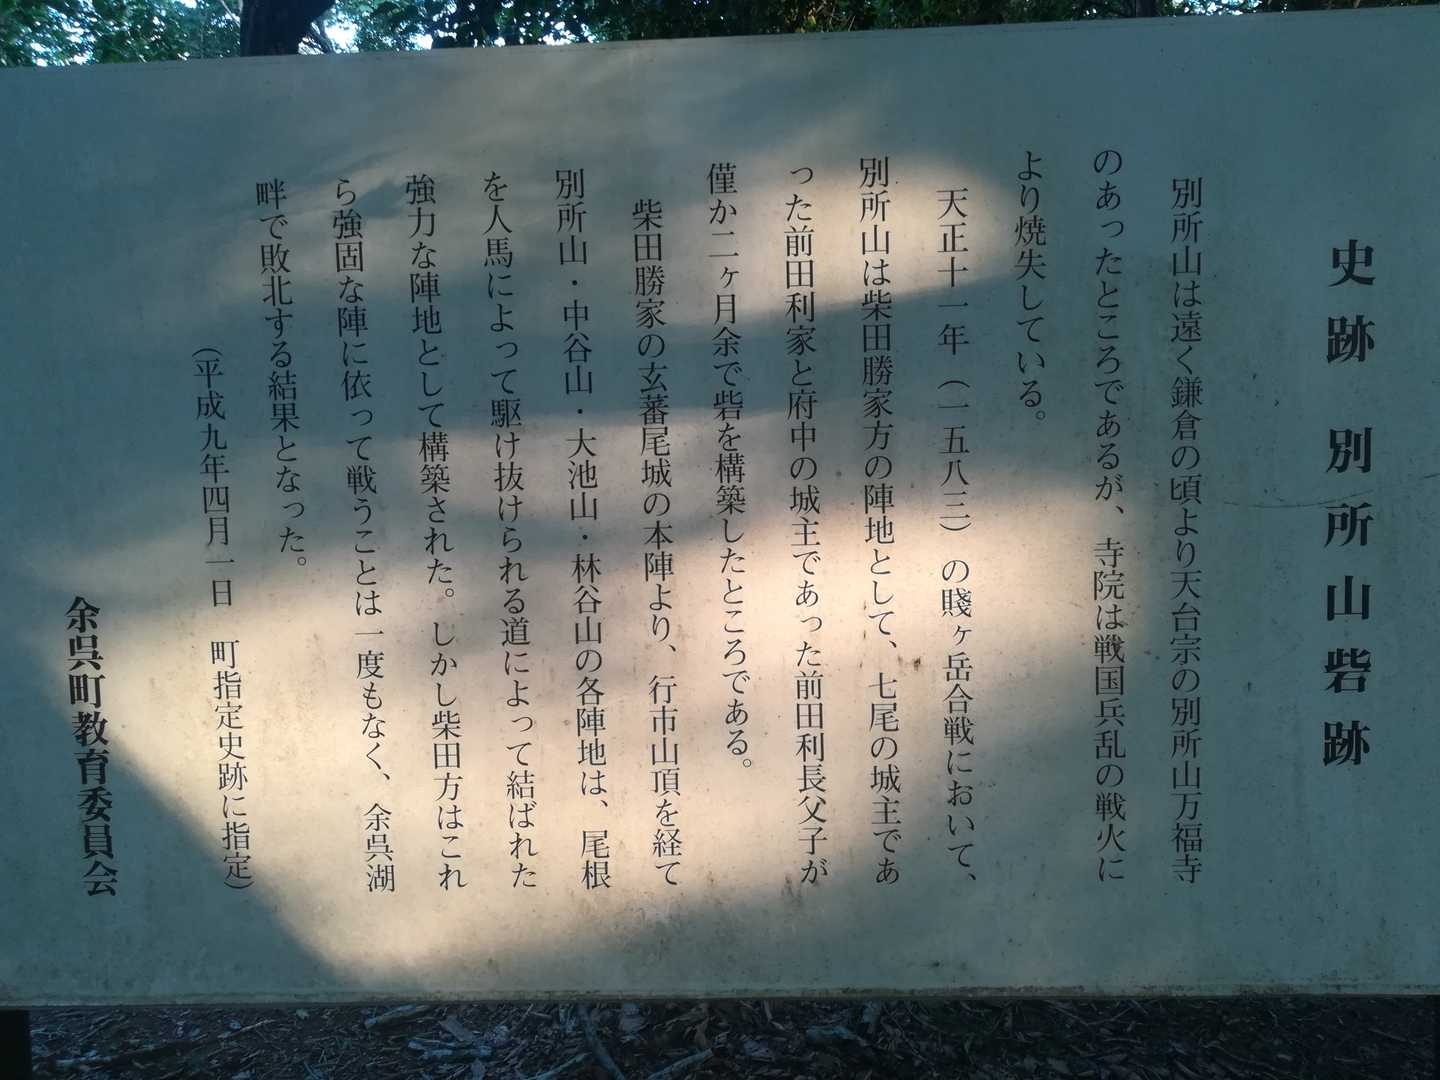 史跡 別所山砦跡
別所山は遠く鎌倉の頃より天台宗の別所山万福寺
のあったところであるが、寺院は戦国兵乱の戦火に
より焼失している。
天正十一年（一五八三）の賤ヶ岳合戦において、
別所山は柴田勝家方の陣地として、七尾の城主であ
った前田利家と府中の城主であった前田利長父子が
僅か二ヶ月余で砦を構築したところである。
柴田勝家の玄蕃尾城の本陣より、行市山頂を経て
別所山・中谷山・大池山・林谷山の各陣地は、尾根
を人馬によって駆け抜けられる道によって結ばれた
強力な陣地として構築された。しかし柴田方はこれ
ら強固な陣に依って戦うことは一度もなく、余呉湖
畔で敗北する結果となった。
（平成九年四月一日 町指定史跡に指定）
余呉町教育委員会